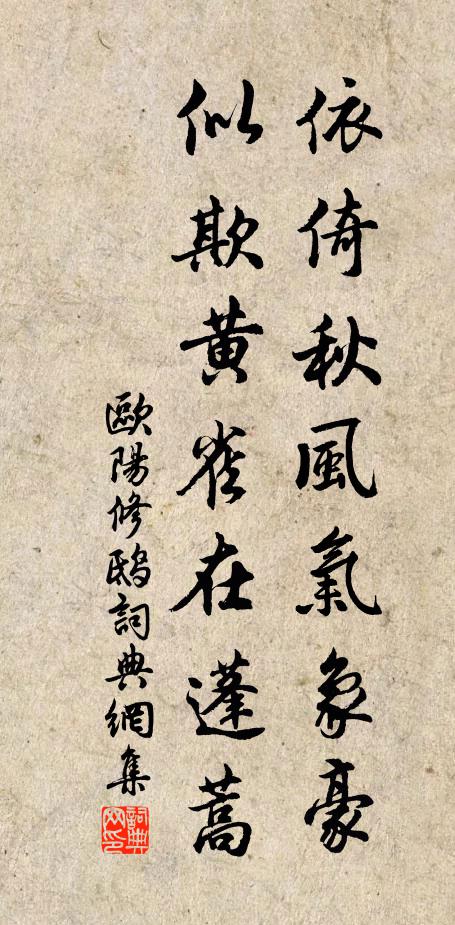 依倚秋風氣象豪
似欺黄雀在蓬蒿
歐陽修鴟詞典網集
詞典
网印